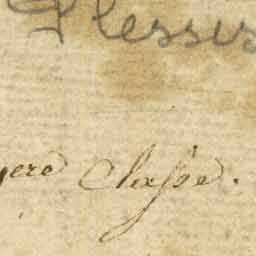 Plessis
yere Classe.